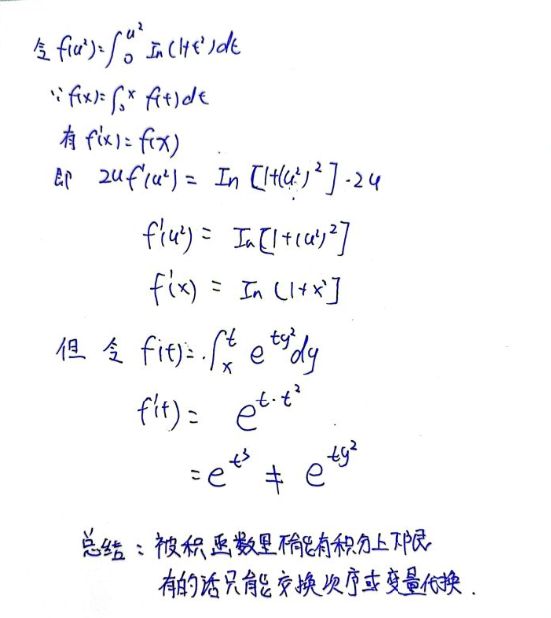 令 f(u²)=∫₀^{u²} In(1+t²)dt
∵ f(x)=∫₀^x f(t)dt
有 f'(x)=f(x)
即 2uf'(u²) = In[1+(u²)²]·2u
f'(u²) = In[1+(u²)²]
f'(x) = In(1+x²]
但 令 f(t)=∫ₓ^t e^{ty²}dy
f'(t) = e^{t·t²}
=e^{t³} ≠ e^{ty²}
总结：被积函数里不能有积分上下限
有的话只能交换次序或变量代换.